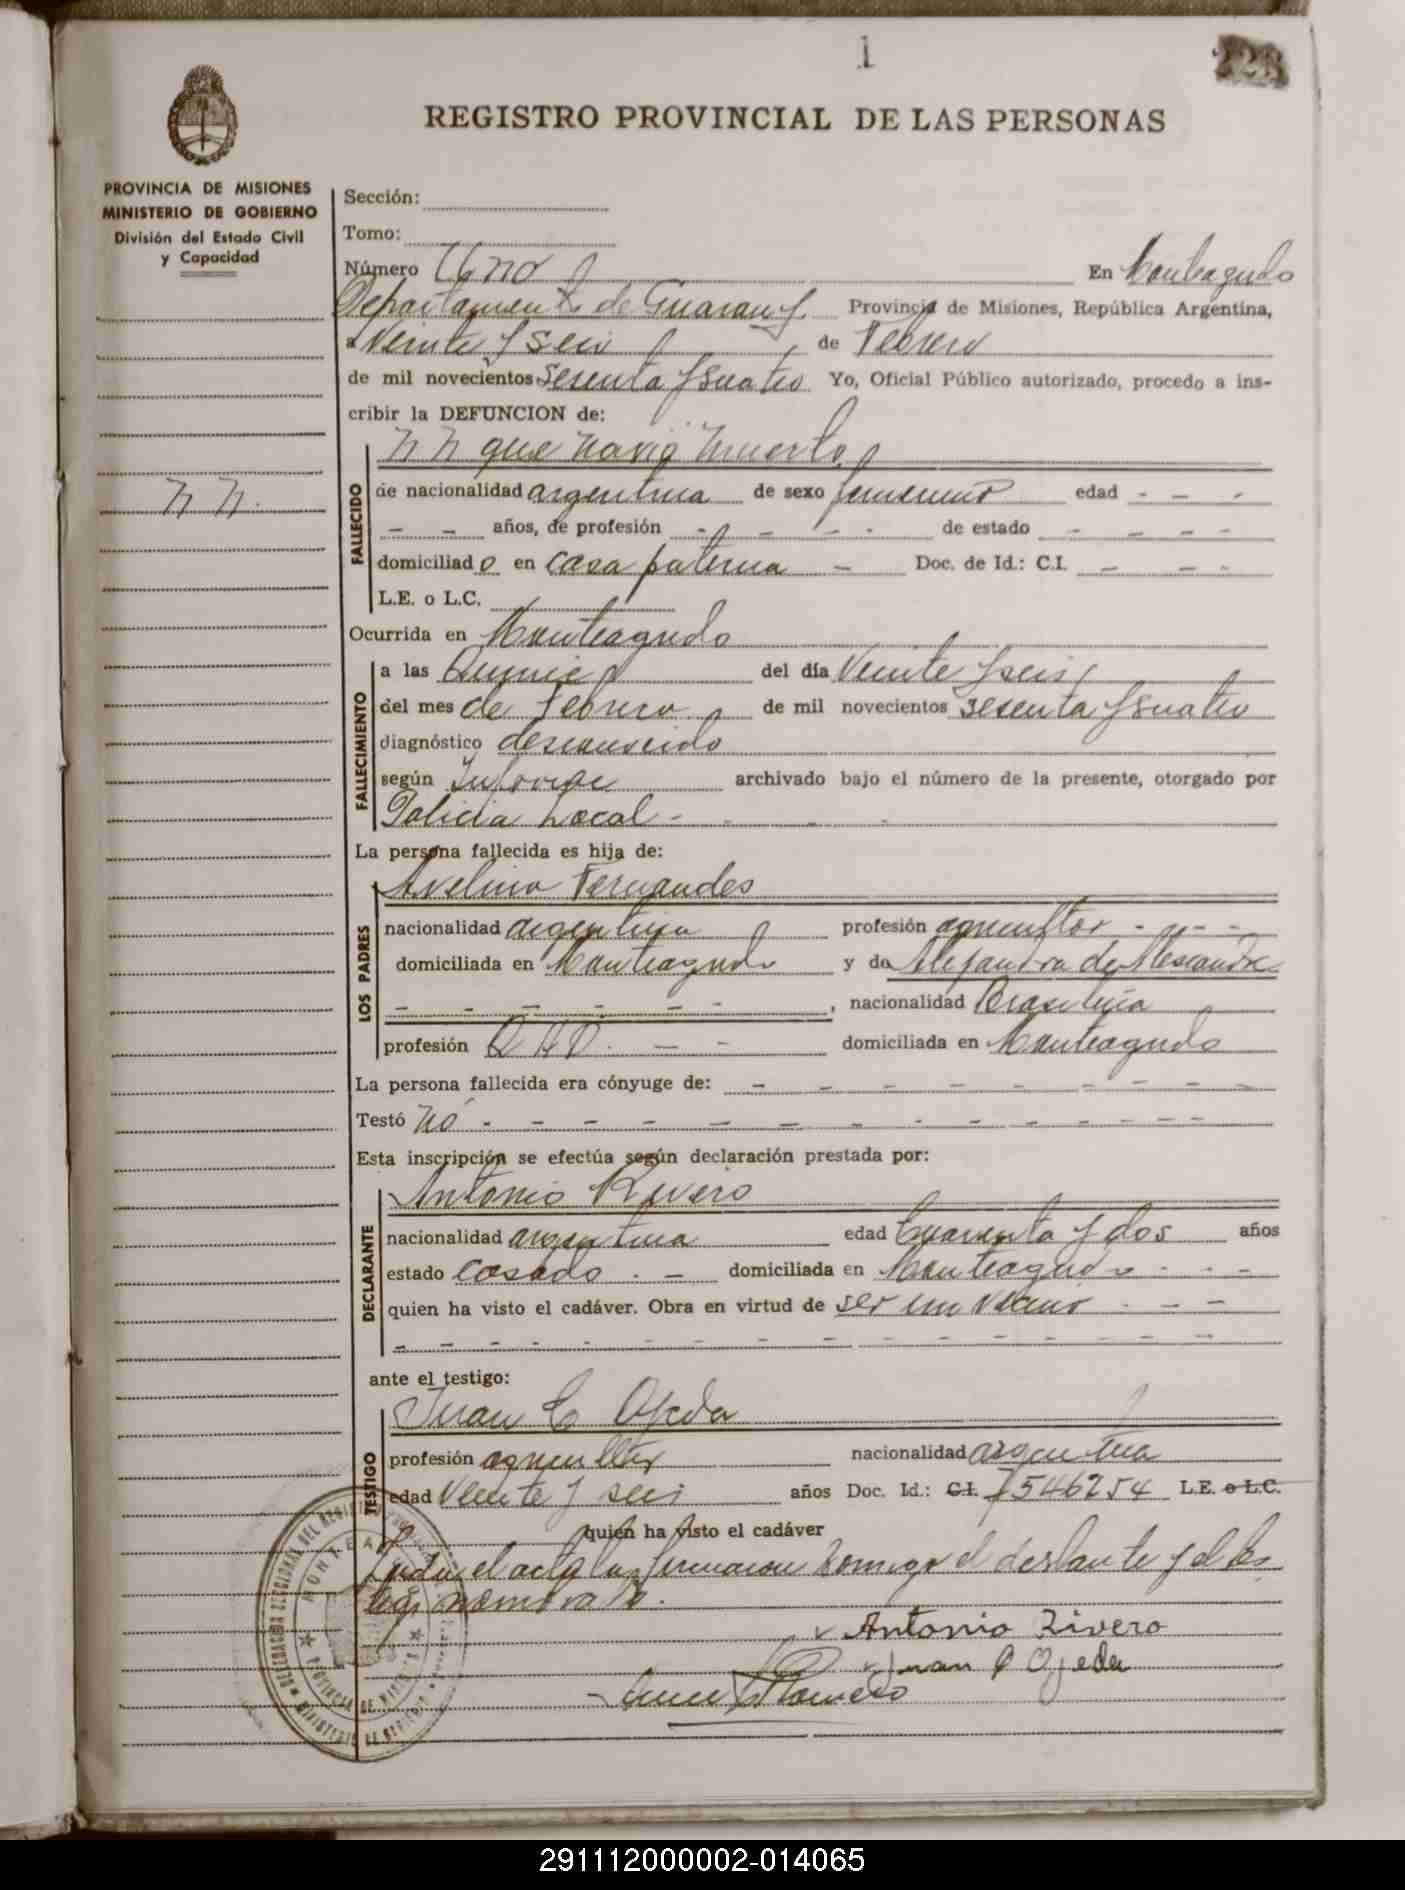 1
REGISTRO PROVINCIAL DE LAS PERSONAS
PROVINCIA DE MISIONES
MINISTERIO DE GOBIERNO
División del Estado Civil
y Capacidad
N N.
Sección:
Tomo:
Número Uno En Monteagudo
Departamento de Guarany Provincia de Misiones, República Argentina,
a Veinte y Seis de Febrero
de mil novecientos Sesenta y Cuatro Yo, Oficial Público autorizado, procedo a ins-
cribir la DEFUNCION de:
N N que nació muerto
FALLECIDO
de nacionalidad argentina de sexo femenino edad - - -
- - años, de profesión - - - - de estado - - - -
domiciliado en casa paterna - Doc. de Id.: C.I. - - -
L.E. o L.C.
Ocurrida en Monteagudo
FALLECIMIENTO
a las Quince del día Veinte y seis
del mes de febrero de mil novecientos sesenta y cuatro
diagnóstico desconocido
según Informe archivado bajo el número de la presente, otorgado por
Policia Local - - -
La persona fallecida es hija de:
LOS PADRES
Avelino Fernandes
nacionalidad argentina profesión agricultor - - - -
domiciliada en Monteagudo y da Alejandra de
- - - - - - , nacionalidad Brasileña
profesión Q. H. D. - - domiciliada en Monteagudo
La persona fallecida era cónyuge de: - - - - - - - - -
Testó No - - - - - - - - - - - -
Esta inscripción se efectúa según declaración prestada por:
DECLARANTE
Antonio Rivero
nacionalidad argentina edad Cuarenta y dos años
estado casado . - domiciliada en Monteagudo - - -
quien ha visto el cadáver. Obra en virtud de ser un vecino - - -
- - - - - - - - - - - - - - -
ante el testigo:
TESTIGO
Juan C Ojeda
profesión agricultor nacionalidad argentina
edad Veinte y seis años Doc. Id.: C.I. 7546254 L.E. o L.C.
quien ha visto el cadáver
el acta la firmaron conmigo el y el
Antonio Rivero
Juan C Ojeda
Romero
DELEGACION SECCIONAL DEL REGISTRO
MONTEA
PROVINCIA DE MISIONES
MINISTERIO DE GOBIERNO
291112000002-014065